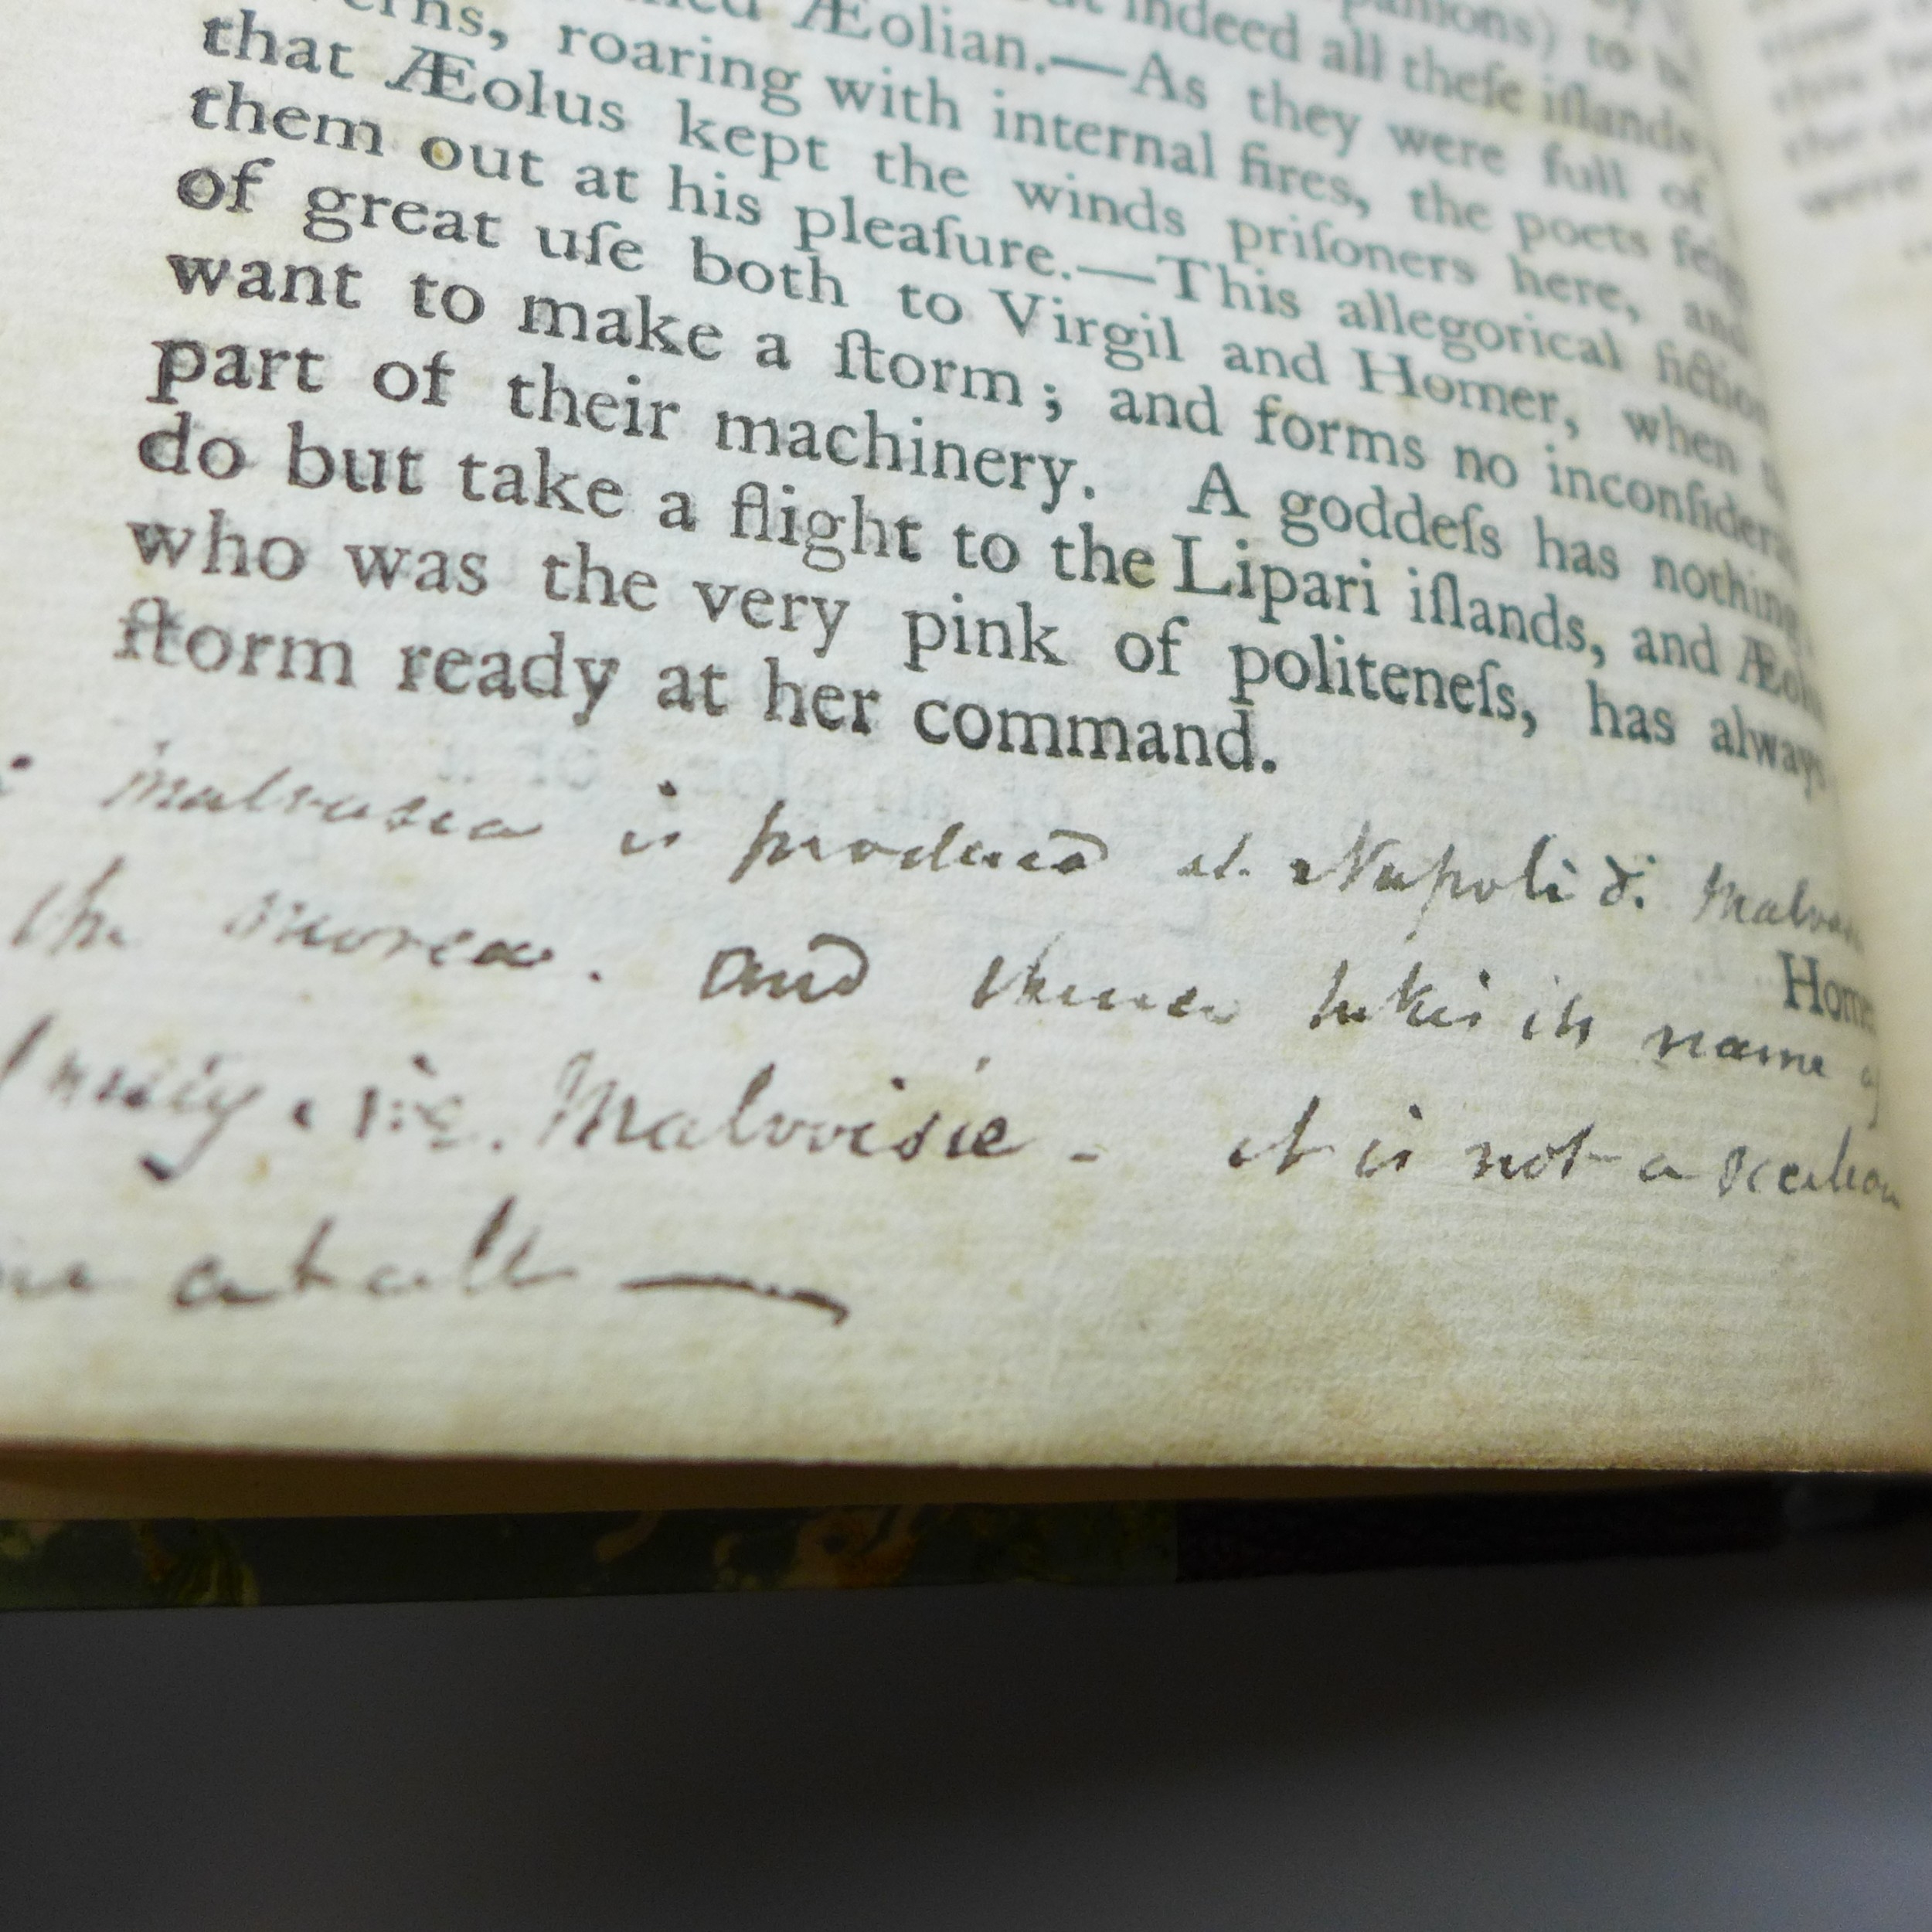 indeed all theſe iſlands
Æolian.—As they were full of
roaring with internal fires, the poets
that Æolus kept the winds priſoners here, and
them out at his pleaſure.—This allegorical fiction
of great uſe both to Virgil and Homer, when
want to make a ſtorm; and forms no inconſidera
part of their machinery. A goddeſs has nothing
do but take a flight to the Lipari iſlands, and Æolu
who was the very pink of politeneſs, has always
ſtorm ready at her command.
malvasia is produced at Napoli di Malva
Hom
the morea. and thence takes its name of
Malvoisie - it is not a
at all —